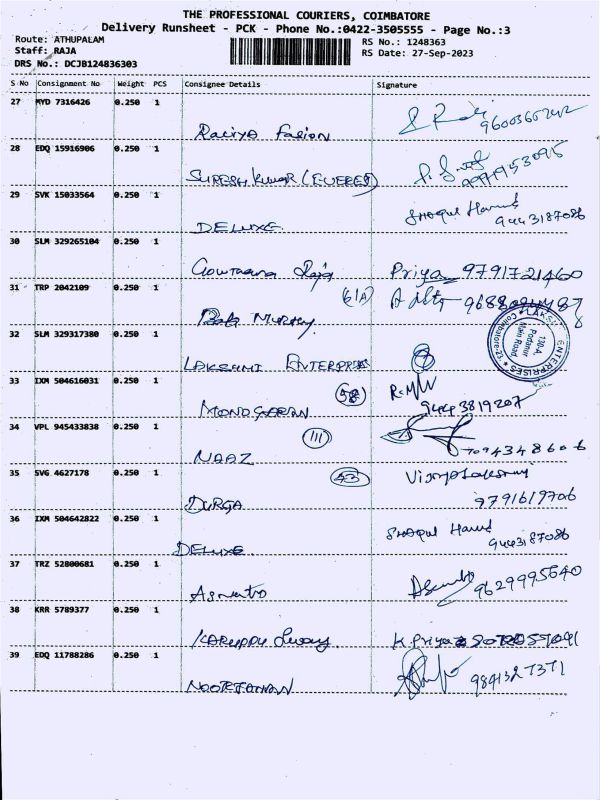 THE PROFESSIONAL COURIERS, COIMBATORE
Delivery Runsheet - PCK - Phone No.:0422-3505555 - Page No.:3
Route: ATHUPALAM
RS No.: 1248363
Staff: RAJA
RS Date: 27-Sep-2023
DRS No.: DCJB124836303
S No Consignment No Weight PCS Consignee Details Signature
27 MYD 7316426 0.250 1
28 EDQ 15916906 0.250 1
SURESH KUMAR (EVEREST)
29 SVK 15033564 0.250 1
DELUXE
9443187086
30 SLM 329265104 0.250 1
Priya 9791721460
31 TRP 2042109 0.250 1
(61A)
MURTHY
32 SLM 329317380 0.250 1
LAKSHMI ENTERPRISES
LAKSHMI ENTERPRISES
130-A, Podanur Main Road
Coimbatore-23
33 IXM 504616031 0.250 1
58
MONOGARAN
9443819207
34 VPL 945433838 0.250 1
111
NAAZ
35 SVG 4627178 0.250 1
43
DURGA
9791619706
36 IXM 504642822 0.250 1
DELUXE
9443187086
37 TRZ 52800681 0.250 1
9629995640
38 KRR 5789377 0.250 1
K. Priya
39 EDQ 11788286 0.250 1
NOORJAHAN
9841327371